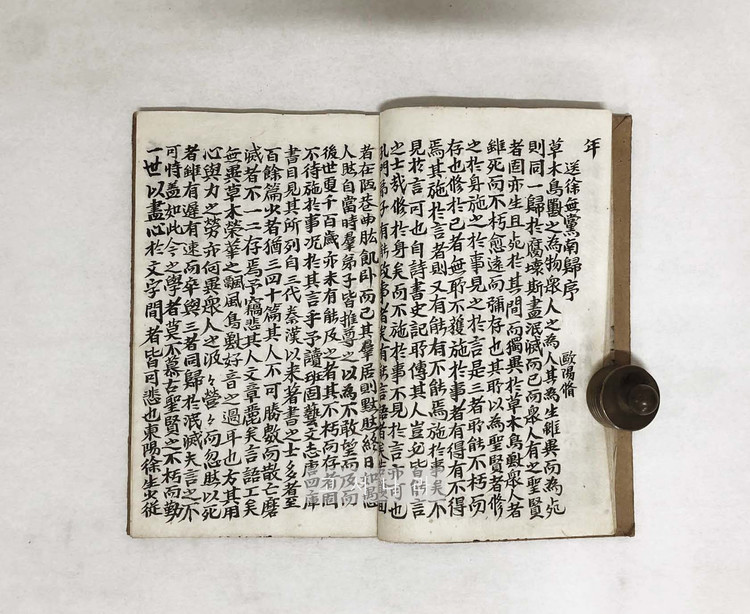 年
送徐無黨南歸序 歐陽脩
草木鳥獸之為物衆人之為人其為生雖異而為死
則同一歸於腐壞斯盡泯滅而已而衆人有之聖賢
者固亦生且死於其間而獨異於草木鳥獸衆人者
雖死而不朽愈遠而彌存也其所以為聖賢者修
之於身施之於事見之於言是三者所能不朽而
存也修於已者無所不獲施於事者有得有不得
焉其施於言者則又有能有不能焉施於事矣不
見於言可也自詩書史記所傳其人豈必皆能言
之士哉修於身矣而不施於事不見於言亦可也
孔門弟子有能政事者矣有能言語者矣
者在陋巷曲肱飢臥而已其羣居則默然終日如愚
人然自當時羣弟子皆推尊之以為不敢望而及而
後世更千百歲亦未有能及之者其不朽而存者固
不待施於事况於其言乎予讀班固藝文志唐四庫
書目見其所列自三代秦漢以來著書之士多者至
百餘篇少者猶三四十篇其人不可勝數而散亡磨
滅者不一二存焉予竊悲其人文章麗矣言語工矣
無異草木榮華之飄風鳥獸好音之過耳也方其用
心與力之勞亦何異衆人之汲々營々而忽然以死
者雖有遲有速而卒與三者同歸於泯滅夫言之不
可恃蓋如此今之學者莫不慕古聖賢之不朽而勤
一世以盡心於文字間者皆可悲也東陽徐生少從